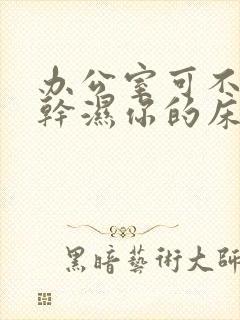 办公室可不
幹濕你的床
黑暗藝術大師